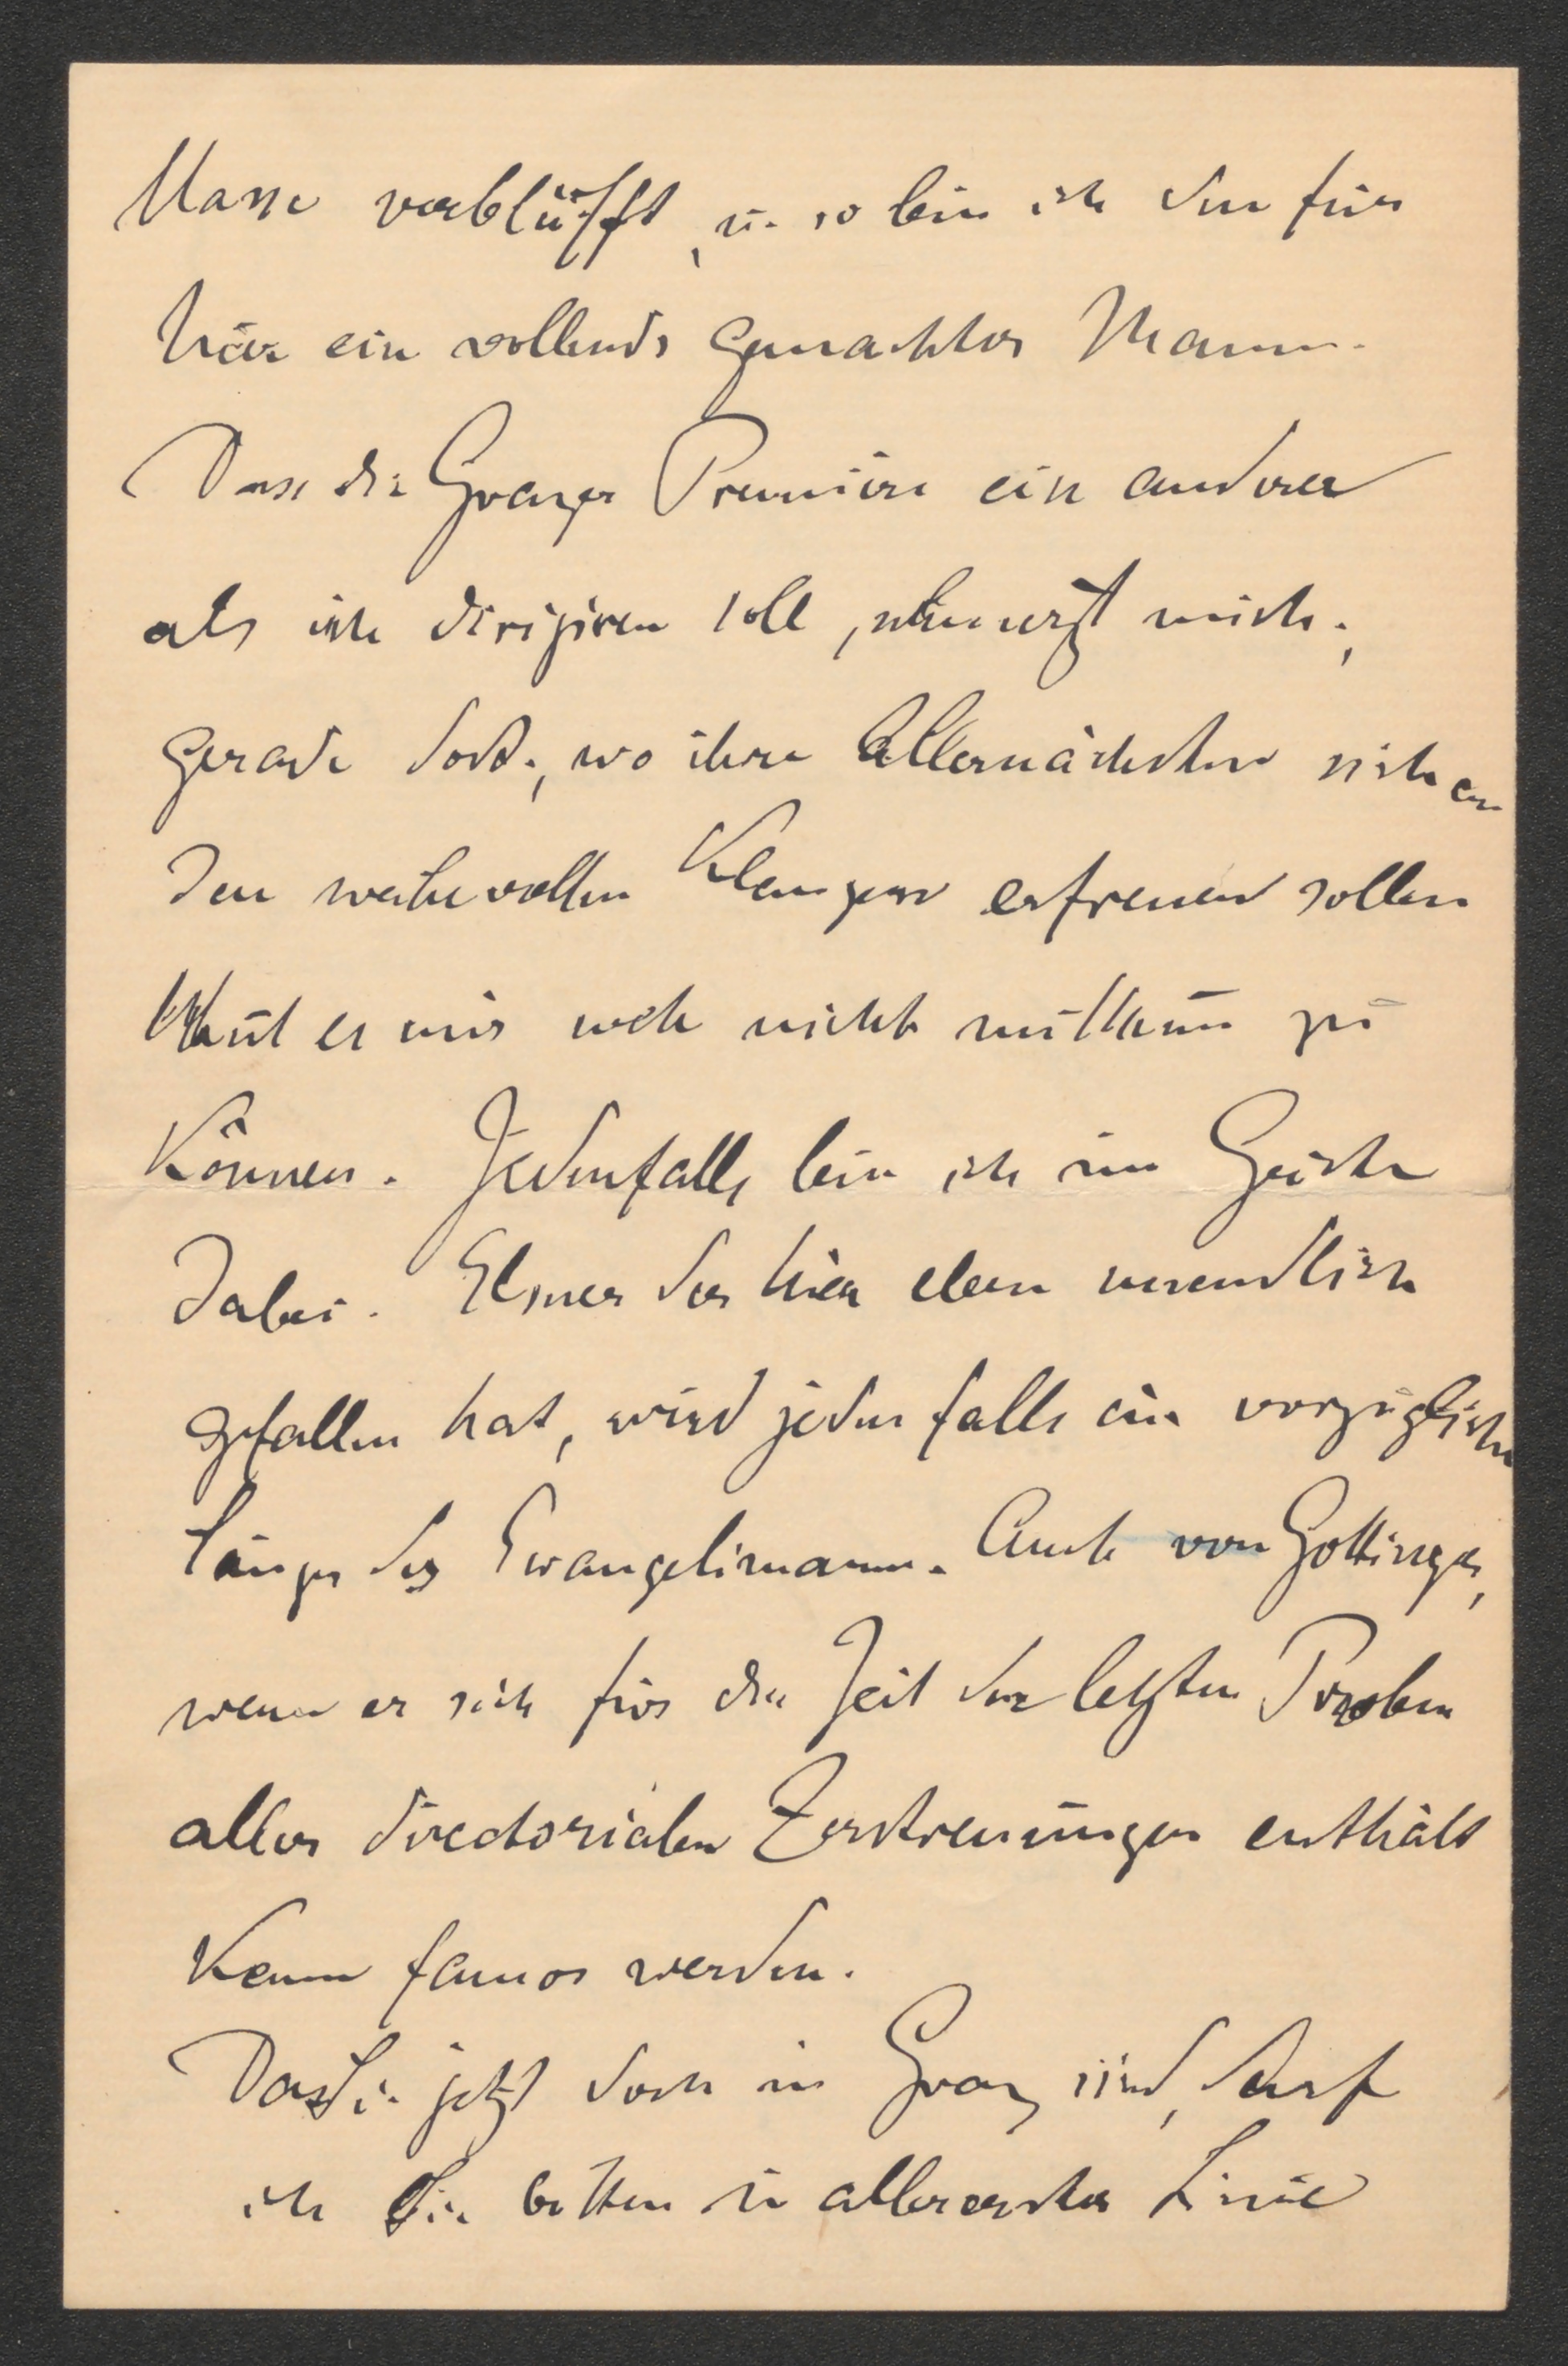 Masse verblüfft, u. so bin ich denn für
hier ein vollends gemachter Mann.
Dass die Grazer Première ein anderer
als ich dirigiren soll, schmerzt mich;
gerade dort, wo ihre Allernächsten sich an
den weihevollen Klängen erfreuen sollen
thut es mir weh nicht mitthun zu
können. Jedenfalls bin ich im Geiste
dabei. Elsner der hier eben unendlich
gefallen hat, wird jedenfalls ein vorzüglicher
Sänger des Evangelimann. Auch von Gottinger,
wenn er sich für die Zeit der letzten Proben
aller directorialen Zerstreuungen enthält
kann famos werden.
Da Sie jetzt doch in Graz sind, darf
ich Sie bitten in allererster Linie